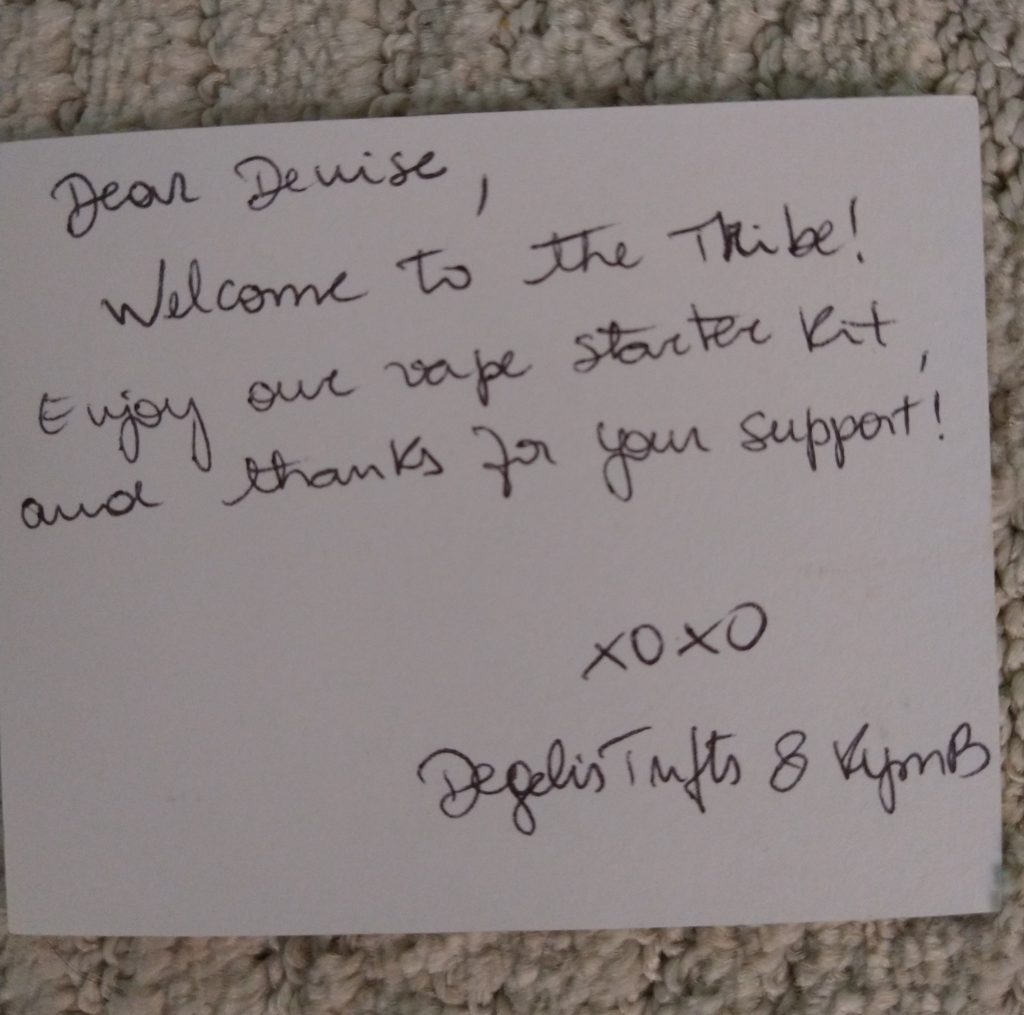 Dear Denise,
Welcome to the Tribe!
Enjoy our vape starter kit,
and thanks for your support!
XOXO
Degelis Tufts & KymB